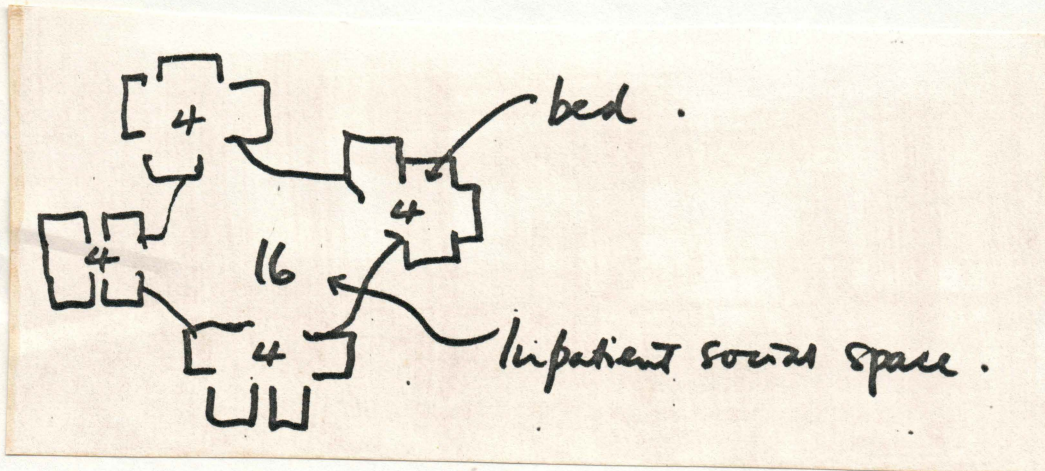 4
bed .
4
4
16
4
Inpatient social space .